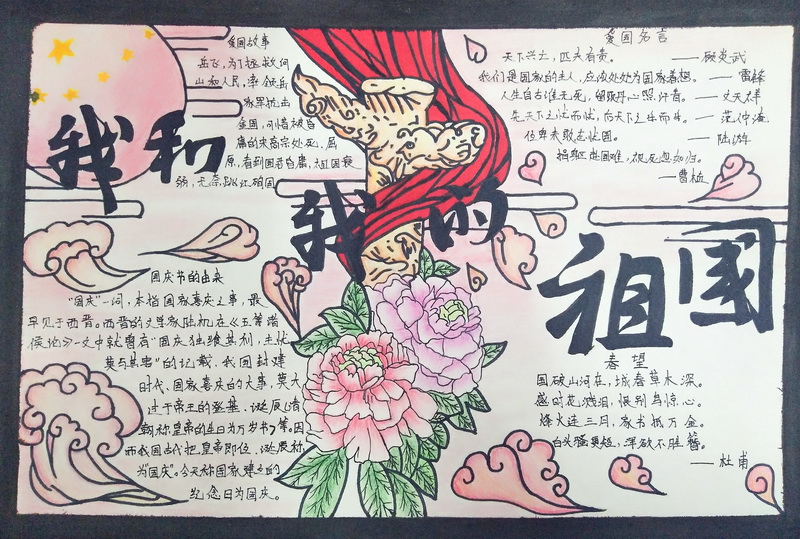 我和
我的
祖国
爱国故事
岳飞，为了拯救河
山和人民，率领岳
家军抗击
金国，可惜被昏
庸的宋高宗处死，屈
原，看到国君昏庸，祖国衰
弱，无奈跳江殉国
爱国名言
天下兴亡，匹夫有责。——顾炎武
我们是国家的主人，应该处处为国家着想。——雷锋
人生自古谁无死，留取丹心照汗青。——文天祥
先天下之忧而忧，后天下之乐而乐。——范仲淹
位卑未敢忘忧国。——陆游
捐躯赴国难，视死忽如归。
——曹植
国庆节的由来
“国庆”一词，本指国家喜庆之事，最
早见于西晋。西晋的文学家陆机在《五等诸
侯论》一文中就曾有“国庆独飨其利，主忧
莫与其害”的记载、我国封建
时代、国家喜庆的大事，莫大
过于帝王的登基、诞辰
朝称皇帝的生日为万岁节等。因
而我国古代把皇帝即位、诞辰称
为“国庆”。今天称国家建立的
纪念日为国庆。
春望
国破山河在，城春草木深。
感时花溅泪，恨别鸟惊心。
烽火连三月，家书抵万金。
白头搔更短，浑欲不胜簪。
——杜甫